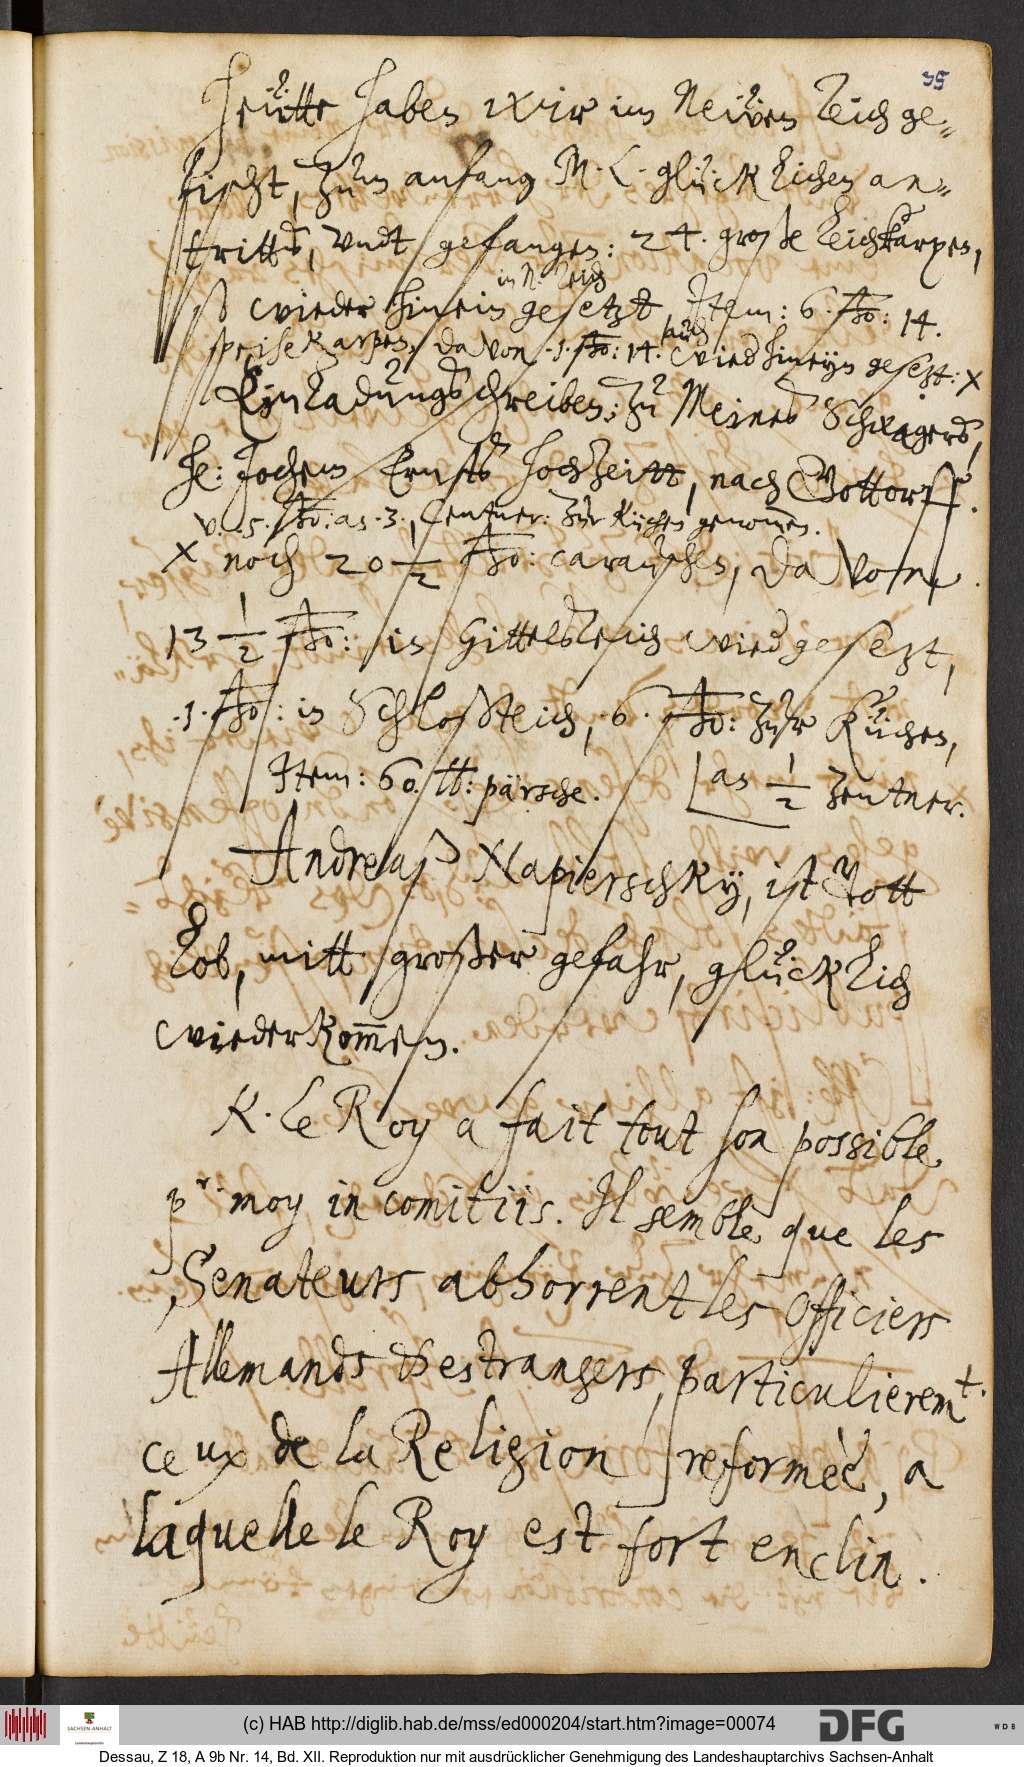 35
Heütte haben wir im Neüen Teich ge-
fischt, zum anfang M. L. glücklichen an-
tritts, vndt gefangen: 24. große Teichkarpen,
in N. Teich
so wieder hinein gesetzt, Jtem: 6. ßo: 14.
speisekarpfen, davon .1. ßo: 14. auch wied hineyn gesetzt: x
Einladungsschreiben; zu Meines Schwagers,
He: Jochem Ernsts hochzeitt, nach Gottorff.
v. .5. ßo: as .3., Centner: zur Küchen genommen.
x noch 20 1/2 ßo: carauschen, da Von
13 1/2 ßo: in Gittelsteich wied gesetzt,
.1. ßo: in Schloßteich, .6. ßo: zur Küchen,
Jtem: 60. tt: pärsche. as 1/2 Zentner.
Andreaß Napierschky, ist Gott
Lob, mitt großer gefahr, glücklich
wiederkom̅en.
K. Le Roy a fait tout son possible
pr. moy in comitiis. Il semble, que les
Senateurs abhorrent les Officiers
Allemands & estrangers, particulieremt.
ceux de la Religion reformèè, a
laquelle le Roy est fort enclin.
(c) HAB http://diglib.hab.de/mss/ed000204/start.htm?image=00074
SACHSEN-ANHALT
DFG
WDB
Dessau, Z 18, A 9b Nr. 14, Bd. XII. Reproduktion nur mit ausdrücklicher Genehmigung des Landeshauptarchivs Sachsen-Anhalt